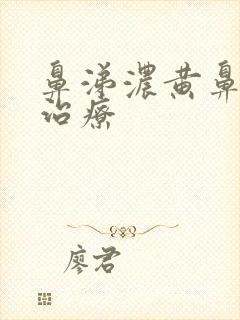 鼻涕濃黃鼻
治療
廖君